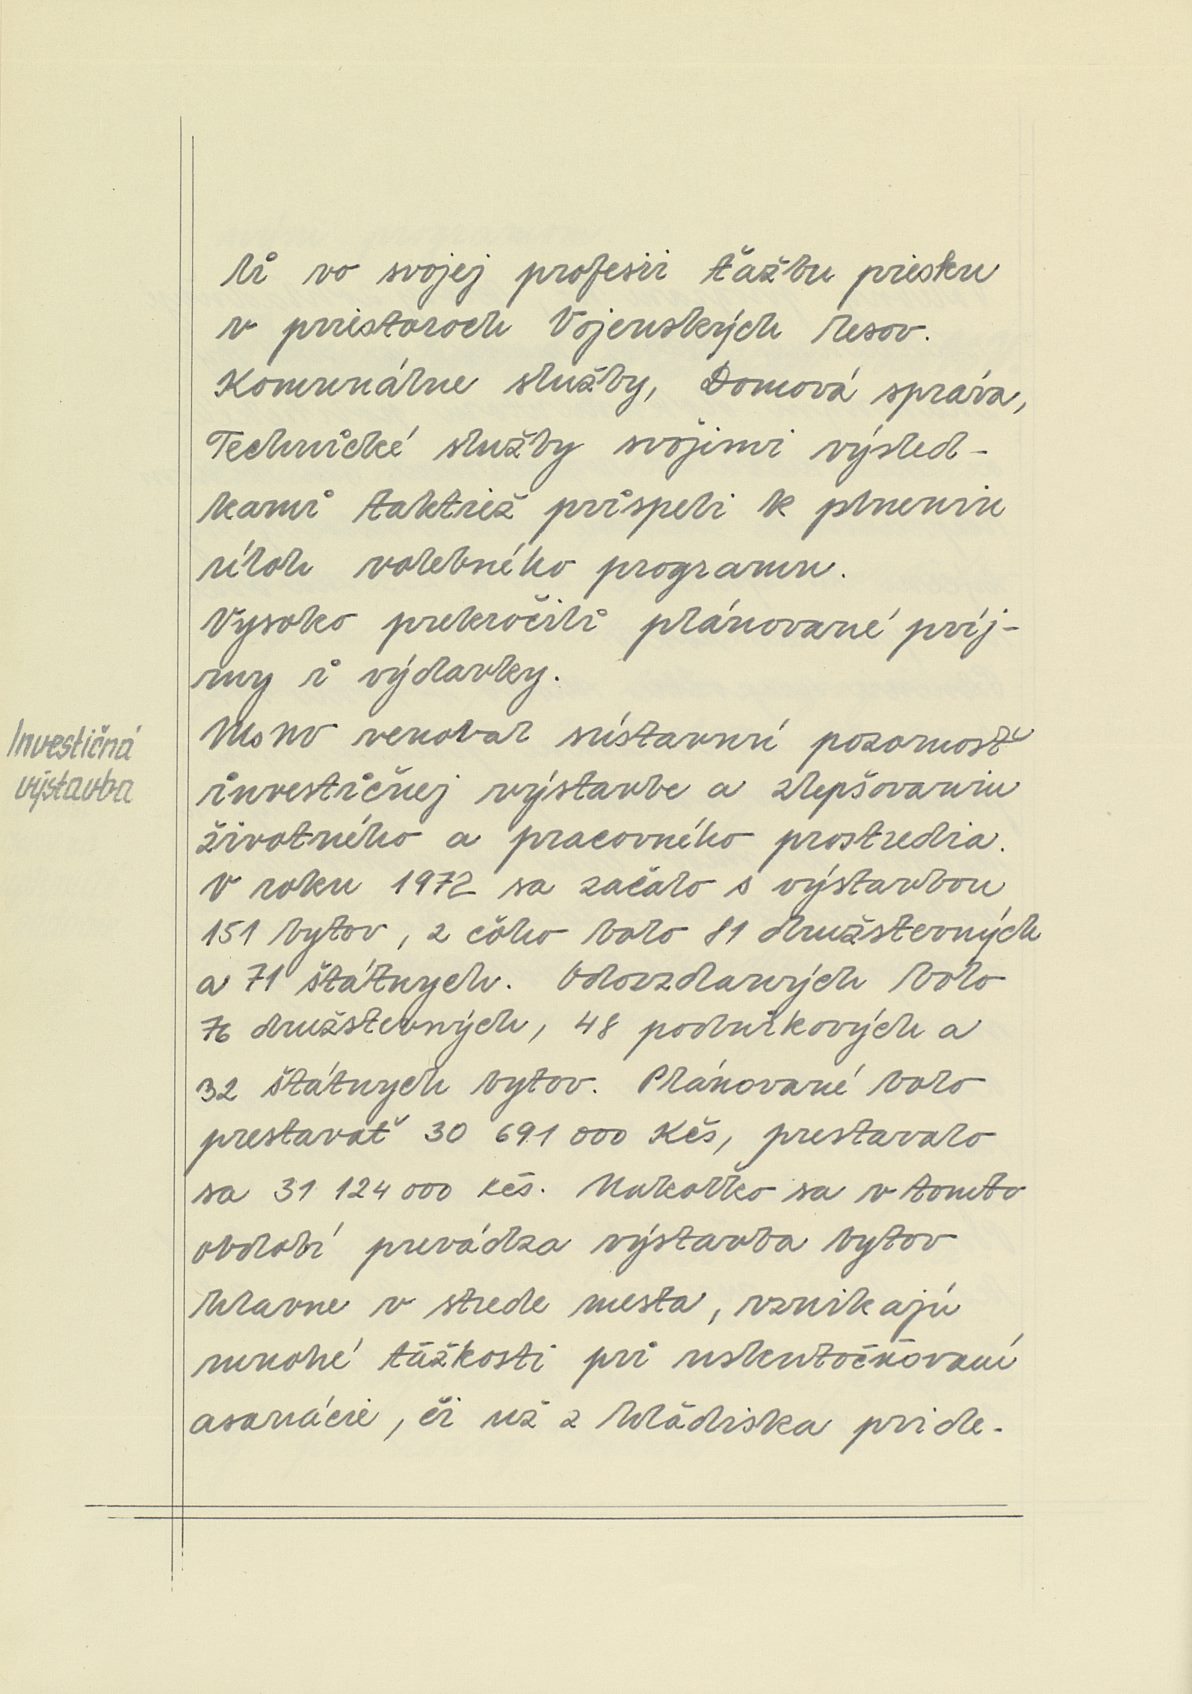 li vo svojej profesii ťažbu piesku
v priestoroch Vojenských lesov.
Komunálne služby, Domová správa,
Technické služby svojimi výsled-
kami taktiež prispeli k plneniu
úloh volebného programu.
Vysoko prekročili plánované príj-
my i výdavky.
MsNV venoval sústavnú pozornosť
Investičná
výstavba
investičnej výstavbe a zlepšovaniu
životného a pracovného prostredia.
V roku 1972 sa začalo s výstavbou
151 bytov, z čoho bolo 81 družstevných
a 71 štátnych. Odovzdaných bolo
76 družstevných, 48 podnikových a
32 štátnych bytov. Plánované bolo
prestavať 30 691 000 Kčs, prestavalo
sa 31 124 000 Kčs. Nakoľko sa v tomto
období prevádza výstavba bytov
hlavne v strede mesta, vznikajú
mnohé ťažkosti pri uskutočňovaní
asanácie, či už z hľadiska pride-